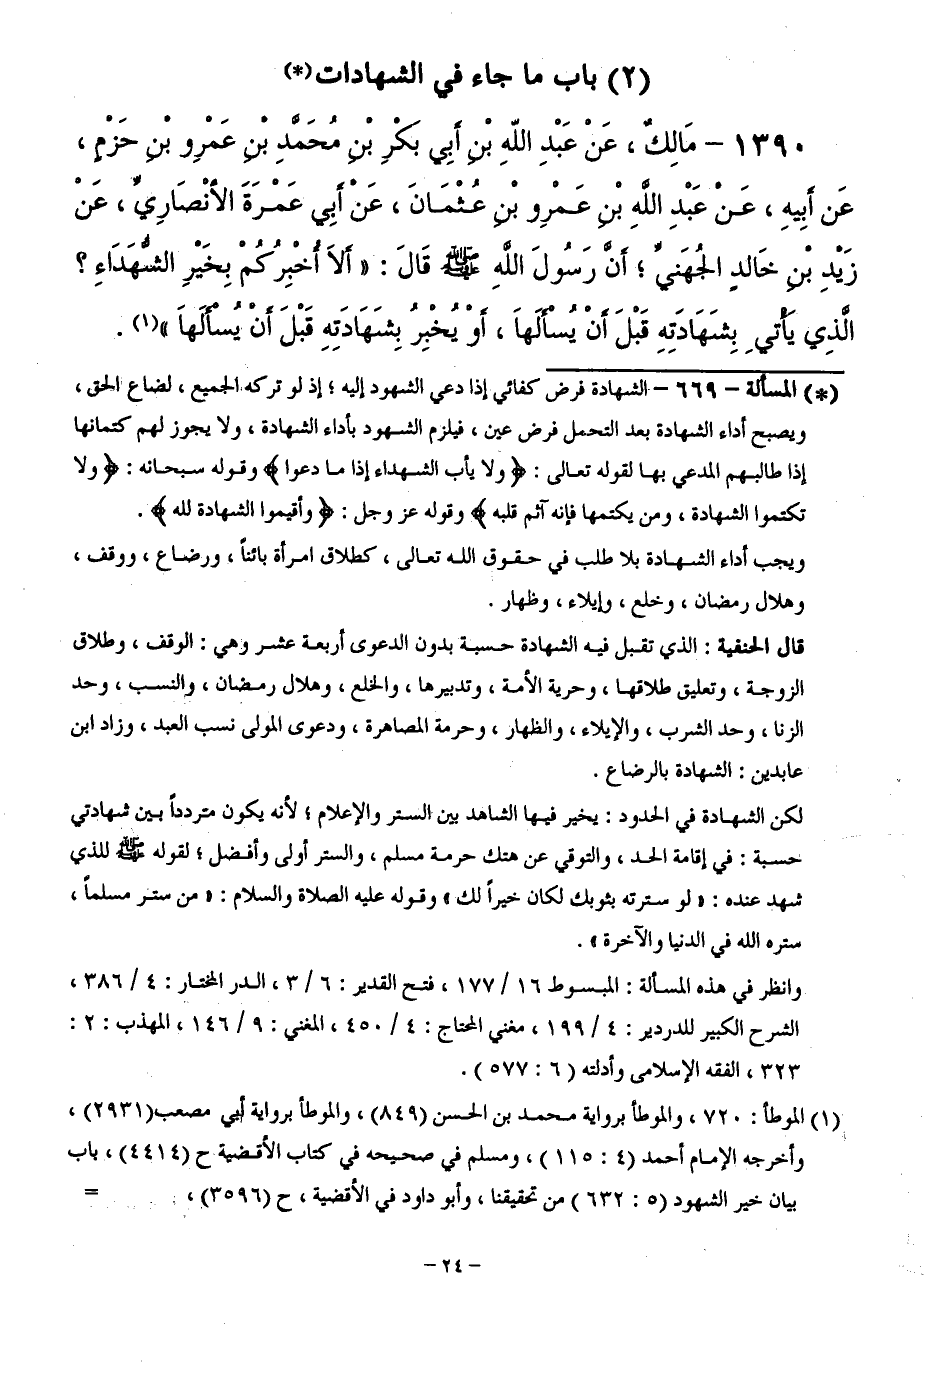 (٢) باب ما جاء في الشهادات(*)
١٣٩٠ – مَالِكٌ ، عَنْ عَبْدِ اللَّهِ بْنِ أَبِي بَكْرِ بْنِ مُحَمَّدِ بْنِ عَمْرِو بْنِ حَزْمٍ ،
عَن أَبِيهِ ، عَنْ عَبْدِ اللَّهِ بْنِ عَمْرِو بْنِ عُثْمَانَ ، عَنْ أَبِي عَمْرَةَ الأَنْصَارِيِّ ، عَنْ
زَيْدِ بْنِ خَالِدٍ الجُهَنِيِّ ؛ أَنَّ رَسُولَ اللَّهِ ﷺ قَالَ : « أَلاَ أُخْبِرُكُمْ بِخَيْرِ الشُّهَدَاءِ ؟
الَّذِي يَأْتِي بِشَهَادَتِهِ قَبْلَ أَنْ يُسأَلَهَا ، أَوْ يُخْبِرُ بِشَهَادَتِهِ قَبْلَ أَنْ يُسأَلَهَا »(١) .
(*) المسألة – ٦٦٩ – الشهادة فرض كفائي إذا دعي الشهود إليه ؛ إذ لو تركه الجميع ، لضاع الحق ،
ويصبح أداء الشهادة بعد التحمل فرض عين ، فيلزم الشهود بأداء الشهادة ، ولا يجوز لهم كتمانها
إذا طالبهم المدعي بها لقوله تعالى : ﴿ ولا يأب الشهداء إذا ما دعوا ﴾ وقوله سبحانه : ﴿ ولا
تكتموا الشهادة ، ومن يكتمها فإنه آثم قلبه ﴾ وقوله عز وجل : ﴿ وأقيموا الشهادة لله ﴾ .
ويجب أداء الشهادة بلا طلب في حقوق الله تعالى ، كطلاق امرأة بائناً ، ورضاع ، ووقف ،
وهلال رمضان ، وخلع ، وإيلاء ، وظهار .
قال الحنفية : الذي تقبل فيه الشهادة حسبة بدون الدعوى أربعة عشر وهي : الوقف ، وطلاق
الزوجة ، وتعليق طلاقها ، وحرية الأمة ، وتدبيرها ، والخلع ، وهلال رمضان ، والنسب ، وحد
الزنا ، وحد الشرب ، والإيلاء ، والظهار ، وحرمة المصاهرة ، ودعوى المولى نسب العبد ، وزاد ابن
عابدين : الشهادة بالرضاع .
لكن الشهادة في الحدود : يخير فيها الشاهد بين الستر والإعلام ؛ لأنه يكون متردداً بين شهادتي
حسبة : في إقامة الحد ، والتوقي عن هتك حرمة مسلم ، والستر أولى وأفضل ؛ لقوله ﷺ للذي
شهد عنده : « لو سترته بثوبك لكان خيراً لك » وقوله عليه الصلاة والسلام : « من ستر مسلماً ،
ستره الله في الدنيا والآخرة » .
وانظر في هذه المسألة : المبسوط ١٦ / ١٧٧ ، فتح القدير : ٦ / ٣ ، الدر المختار : ٤ / ٣٨٦ ،
الشرح الكبير للدردير : ٤ / ١٩٩ ، مغني المحتاج : ٤ / ٤٥٠ ، المغني : ٩ / ١٤٦ ، المهذب : ٢ :
٣٢٣ ، الفقه الإسلامى وأدلته ( ٦ : ٥٧٧ ) .
(١) الموطأ : ٧٢٠ ، والموطأ برواية محمد بن الحسن (٨٤٩) ، والموطأ برواية أبي مصعب(٢٩٣١) ،
وأخرجه الإمام أحمد (٤ : ١١٥ ) ، ومسلم في صحيحه في كتاب الأقضية ح (٤٤١٤) ، باب
بيان خير الشهود (٥ : ٦٣٢ ) من تحقيقنا ، وأبو داود في الأقضية ، ح (٣٥٩٦) ، =
– ٢٤ –